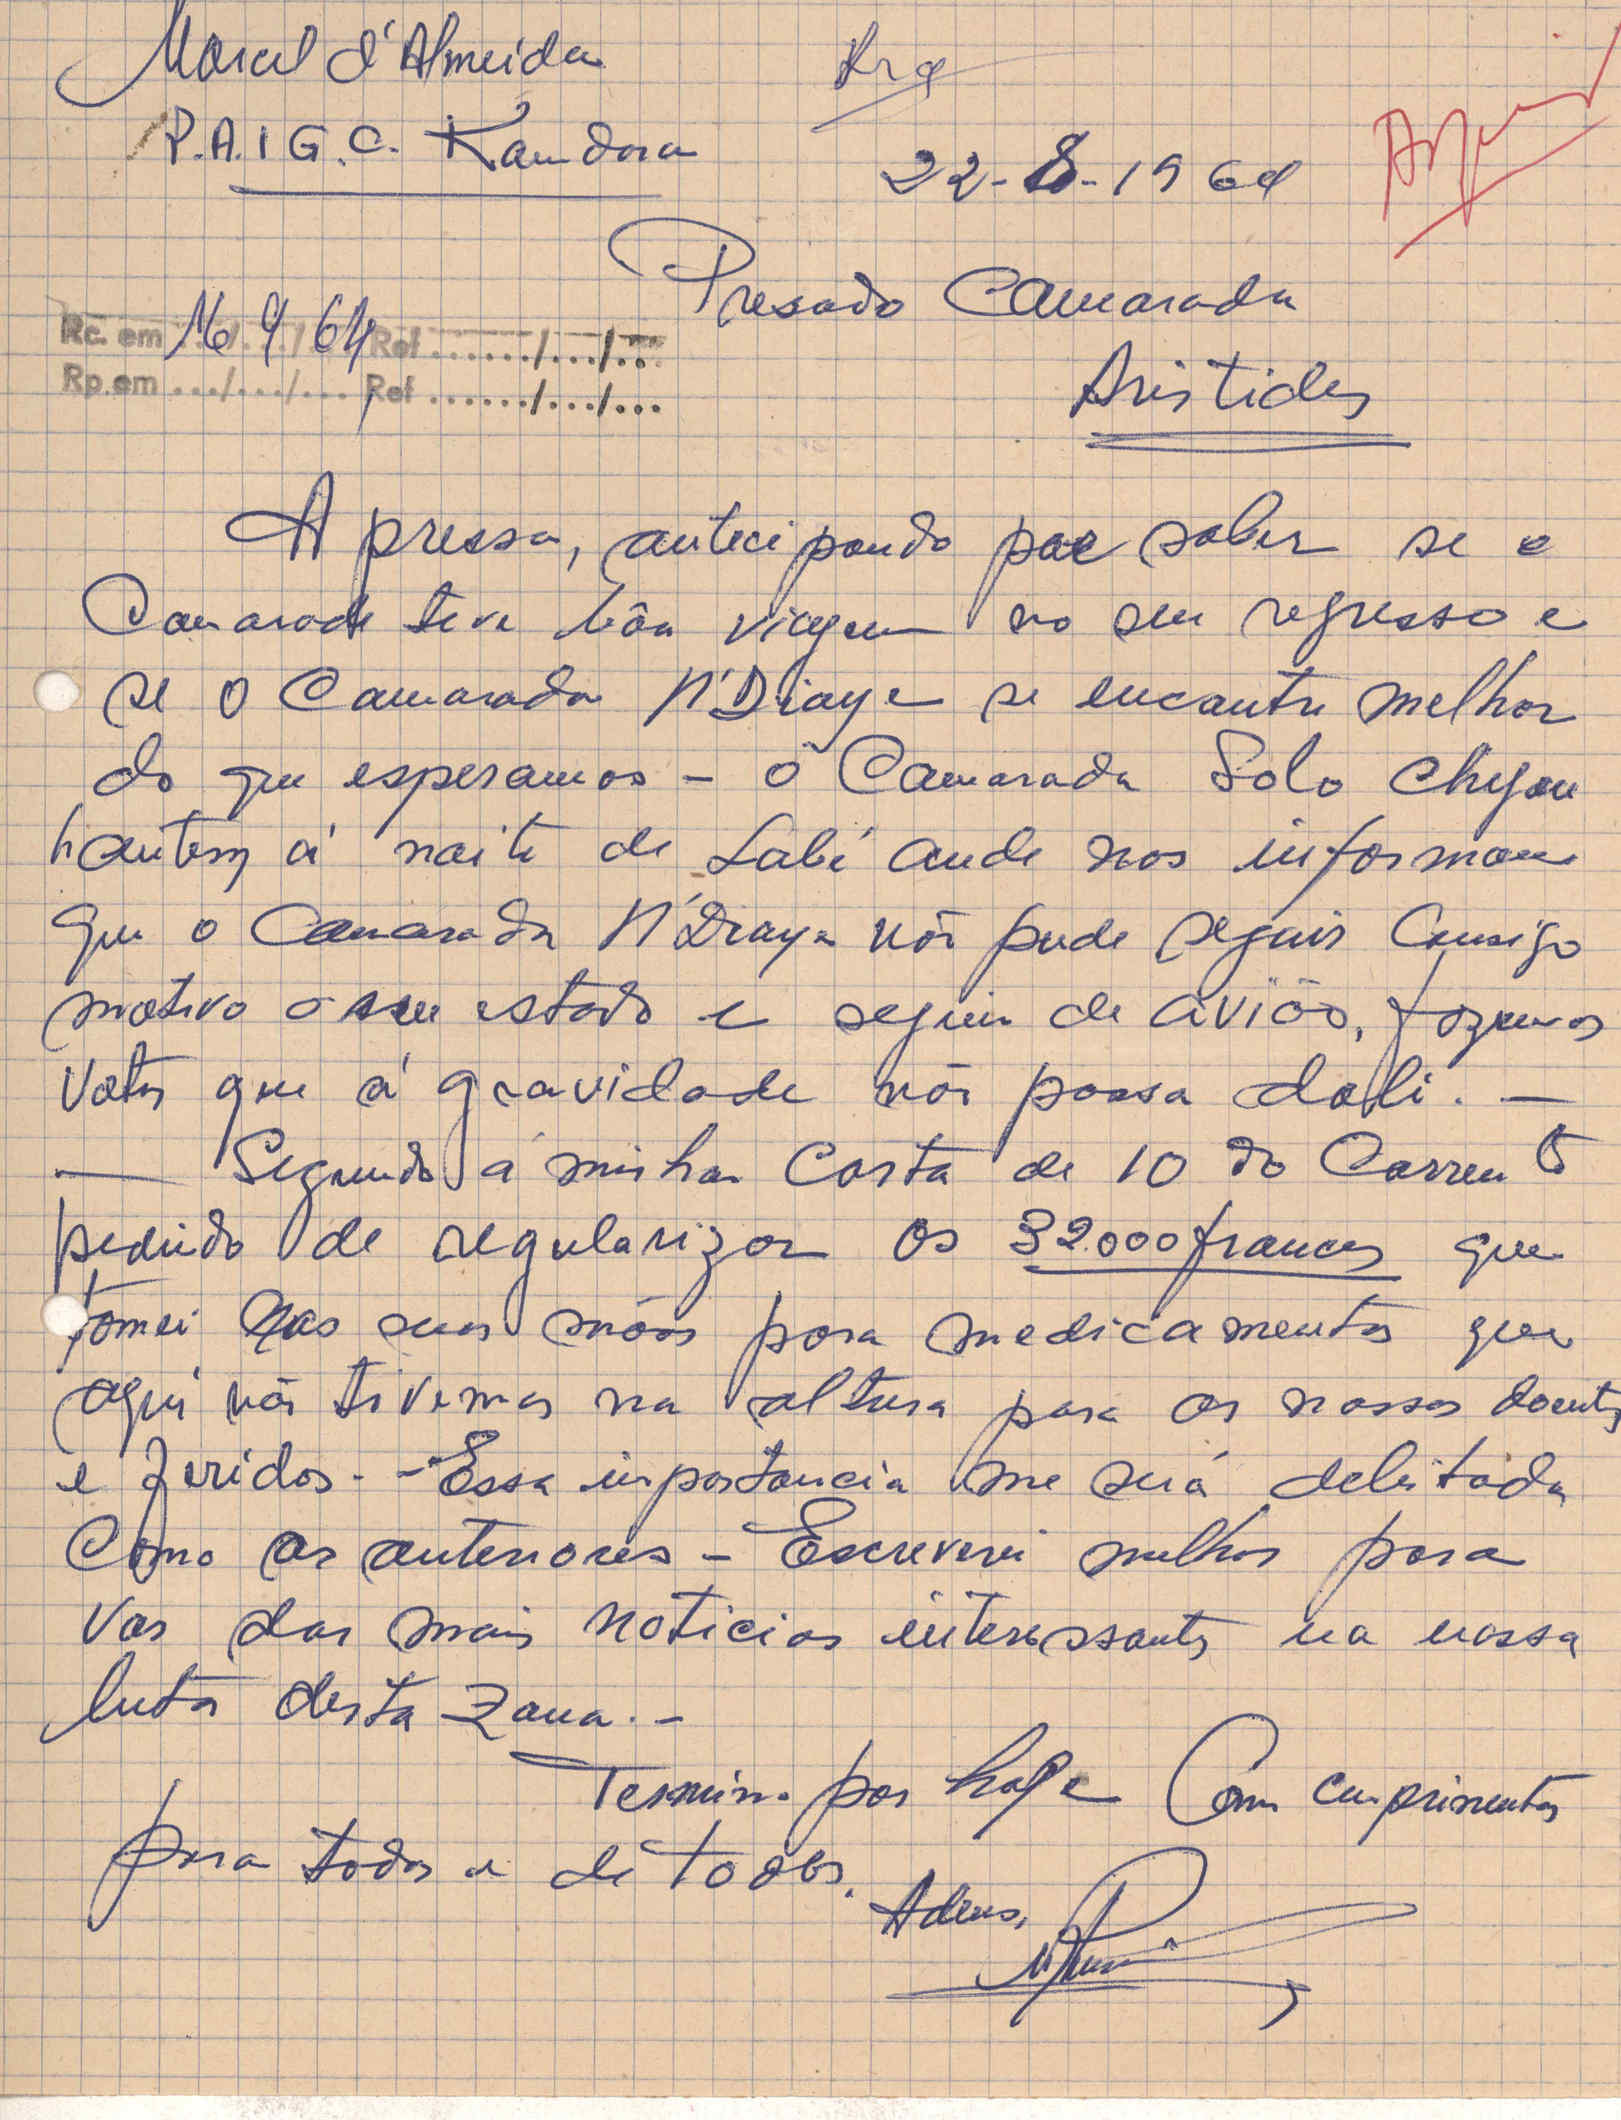 Marcel d'Almeida
P.A.I G.C. Kandara
22-8-1964
Presado Camarada
Rc. em 16 9 64 Ref ....../.../...
Rp.em .../.../... Ref ....../.../...
Aristides
A pressa, antecipando por saber se o
Camarada teve bôa viagem no seu regresso e
se o Camarada N'Diaye se encontre melhor
do que esperamos - o Camarada Solo chegou
hontem á noite de Labé onde nos informou
que o Camarada N'Diaye não pude seguir Consigo
motivo o seu estado e seguiu de avião, fazemos
votos que á gravidade não possa dali. -
- Segundo a minha Carta de 10 do Corrente
pedindo de regularizar os 32.000 francos que
tomei nas suas mãos para medicamentos que
aqui não tivemos na altura para os nossos doentes
e feridos. - Essa importancia me será debitada
Como as anteriores - Escreverei melhor para
vos dar mais noticias interessants na nossa
luta desta zona. -
Termino por hoje Com cumprimentos
para todos e de todos.
Adeus,